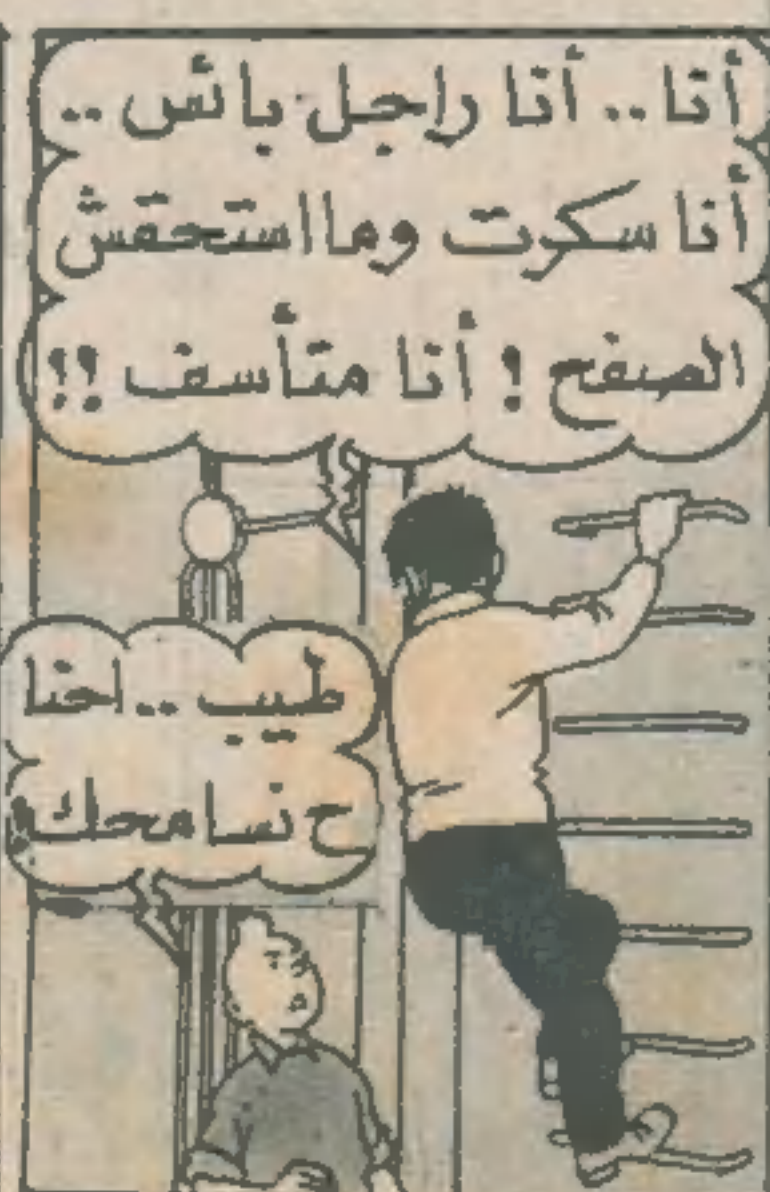 أنا .. أنا راجل بائس ..
أنا سكرت وما استحقش
الصفح ! أنا متأسف !!
طيب .. احنا
ح نسامحك